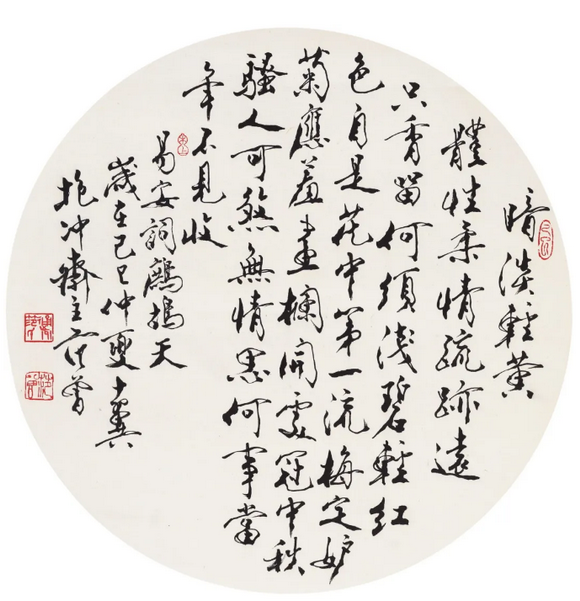 暗淡輕黄
體性柔情疏跡遠
只香留何須淺碧輕紅
色自是花中第一流梅定妒
菊應羞畫欄開處冠中秋
騷人可煞無情思何事當
年不見收
易安詞鷓鴣天
歲在己巳仲夏十翼
抱冲齋主范曾